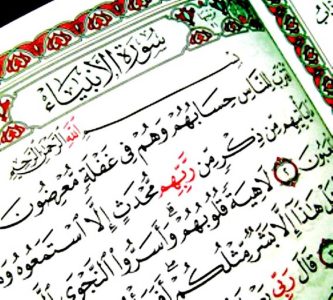 سورة الأنبياء
بسم الله الرحمن الرحيم
للناس حسابهم وهم في غفلة معرضون
يأتيهم من ذكر من ربهم محدث إلا استمعوه
لاهية قلوبهم وأسروا النجوى
هذا إلا بشر مثلكم
قال ربي